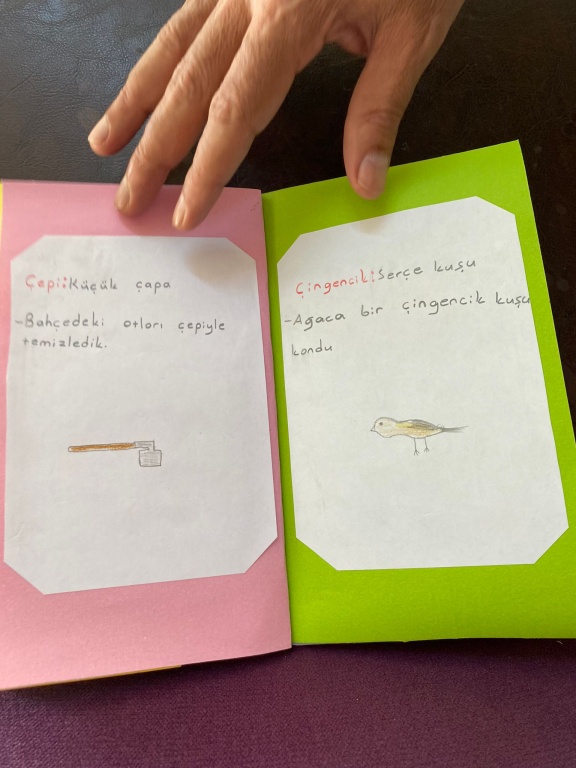 Çepi:Küçük çapa
-Bahçedeki otları çepiyle
temizledik.
Çingencik:Serçe kuşu
-Ağaca bir çingencik kuşu
kondu